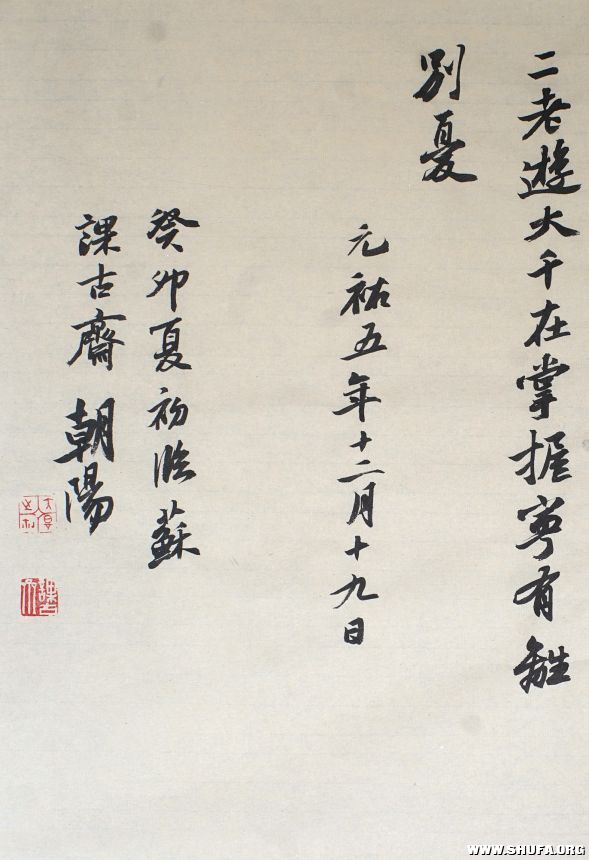 二老遊大千在掌握寧有離
別憂
元祐五年十二月十九日
癸卯夏初臨蘇
課古齋 朝陽
WWW.SHUFA.ORG